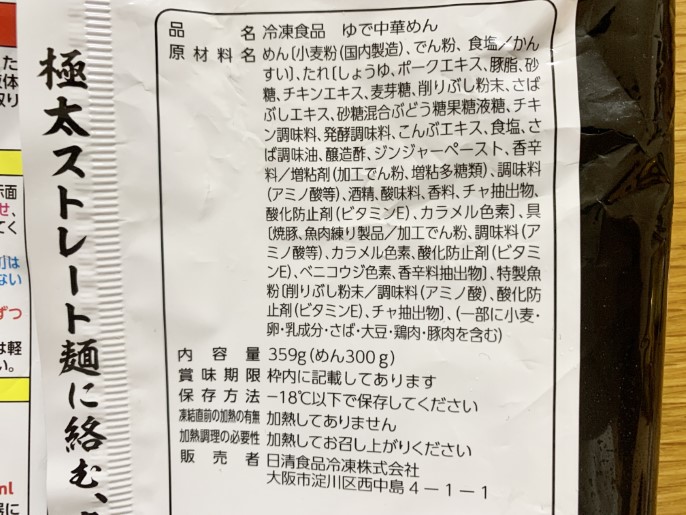 品名 冷凍食品 ゆで中華めん
原材料名 めん〔小麦粉(国内製造)、でん粉、食塩/かん
すい〕、たれ〔しょうゆ、ポークエキス、豚脂、砂
糖、チキンエキス、麦芽糖、削りぶし粉末、さば
ぶしエキス、砂糖混合ぶどう糖果糖液糖、チキ
ン調味料、発酵調味料、こんぶエキス、食塩、さ
ば調味油、醸造酢、ジンジャーペースト、香辛
料/増粘剤(加工でん粉、増粘多糖類)、調味料
(アミノ酸等)、酒精、酸味料、香料、チャ抽出物、
酸化防止剤(ビタミンE)、カラメル色素〕、具
〔焼豚、魚肉練り製品/加工でん粉、調味料(ア
ミノ酸等)、カラメル色素、酸化防止剤(ビタミ
ンE)、ベニコウジ色素、香辛料抽出物〕、特製魚
粉〔削りぶし粉末/調味料(アミノ酸)、酸化防
止剤(ビタミンE)、チャ抽出物〕、(一部に小麦・
卵・乳成分・さば・大豆・鶏肉・豚肉を含む)
内容量 359g(めん300g)
賞味期限 枠内に記載してあります
保存方法 -18℃以下で保存してください
凍結直前の加熱の有無 加熱してありません
加熱調理の必要性 加熱してお召し上がりください
販売者 日清食品冷凍株式会社
大阪市淀川区西中島4-1-1
極太ストレート麺に絡む、
た
液体
取り
示面
せ、
てく
では
ない
ずつ
は軽
い。
ml
器に